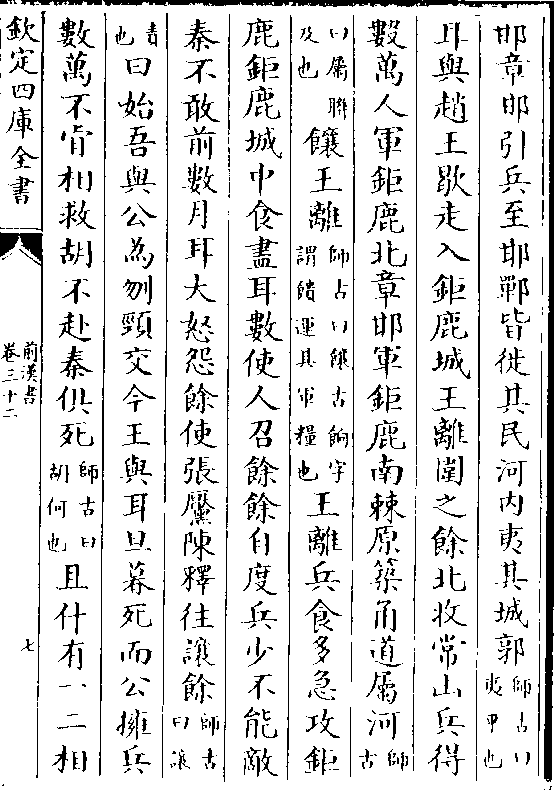 邯章邯引兵至邯鄲皆徙其民河内夷其城郭師古曰夷平也
耳與趙王歇走入鉅鹿城王離圍之餘北收常山兵得
數萬人軍鉅鹿北章邯軍鉅鹿南棘原築甬道屬河師古
曰屬聯及也饟王離師古曰饟古餉字謂饋運其軍糧也王離兵食多急攻鉅
鹿鉅鹿城中食盡耳數使人召餘餘自度兵少不能敵
秦不敢前數月耳大怒怨餘使張黶陳釋往讓餘師古曰讓
責也曰始吾與公為刎頸交今王與耳旦暮死而公擁兵
數萬不肯相救胡不赴秦俱死師古曰胡何也且什有一二相
欽定四庫全書
前漢書
卷三十二
七